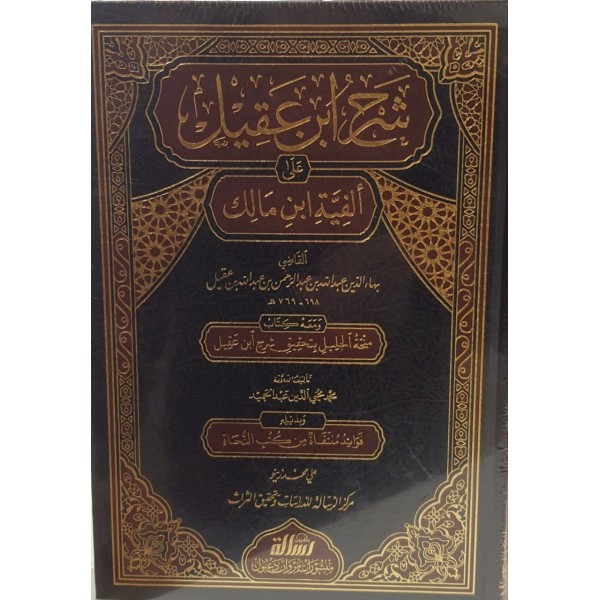 شَرْحُ ابْنِ عَقِيل
عَلَى
أَلفِيَّةِ ابْنِ مَالِك
القَاضِي
بهاء الدين عبد الله بن عبد الرحمن بن عبد الله بن عقيل
٦٩٨ - ٧٦٩ هـ
وَمَعَهُ كِتَابُ
مِنْحَةُ الجَليل بِتَحقيق شرح ابن عَقيل
تأليف العلامة
محمد محيي الدين عبد الحميد
وبذيله
فَوَائِدُ مُنتَقاة مِن كُتُبِ النُّحَاة
علي محمد زينو
مركز الرسالة للدراسات وتحقيق التراث
رسالة ناشرون